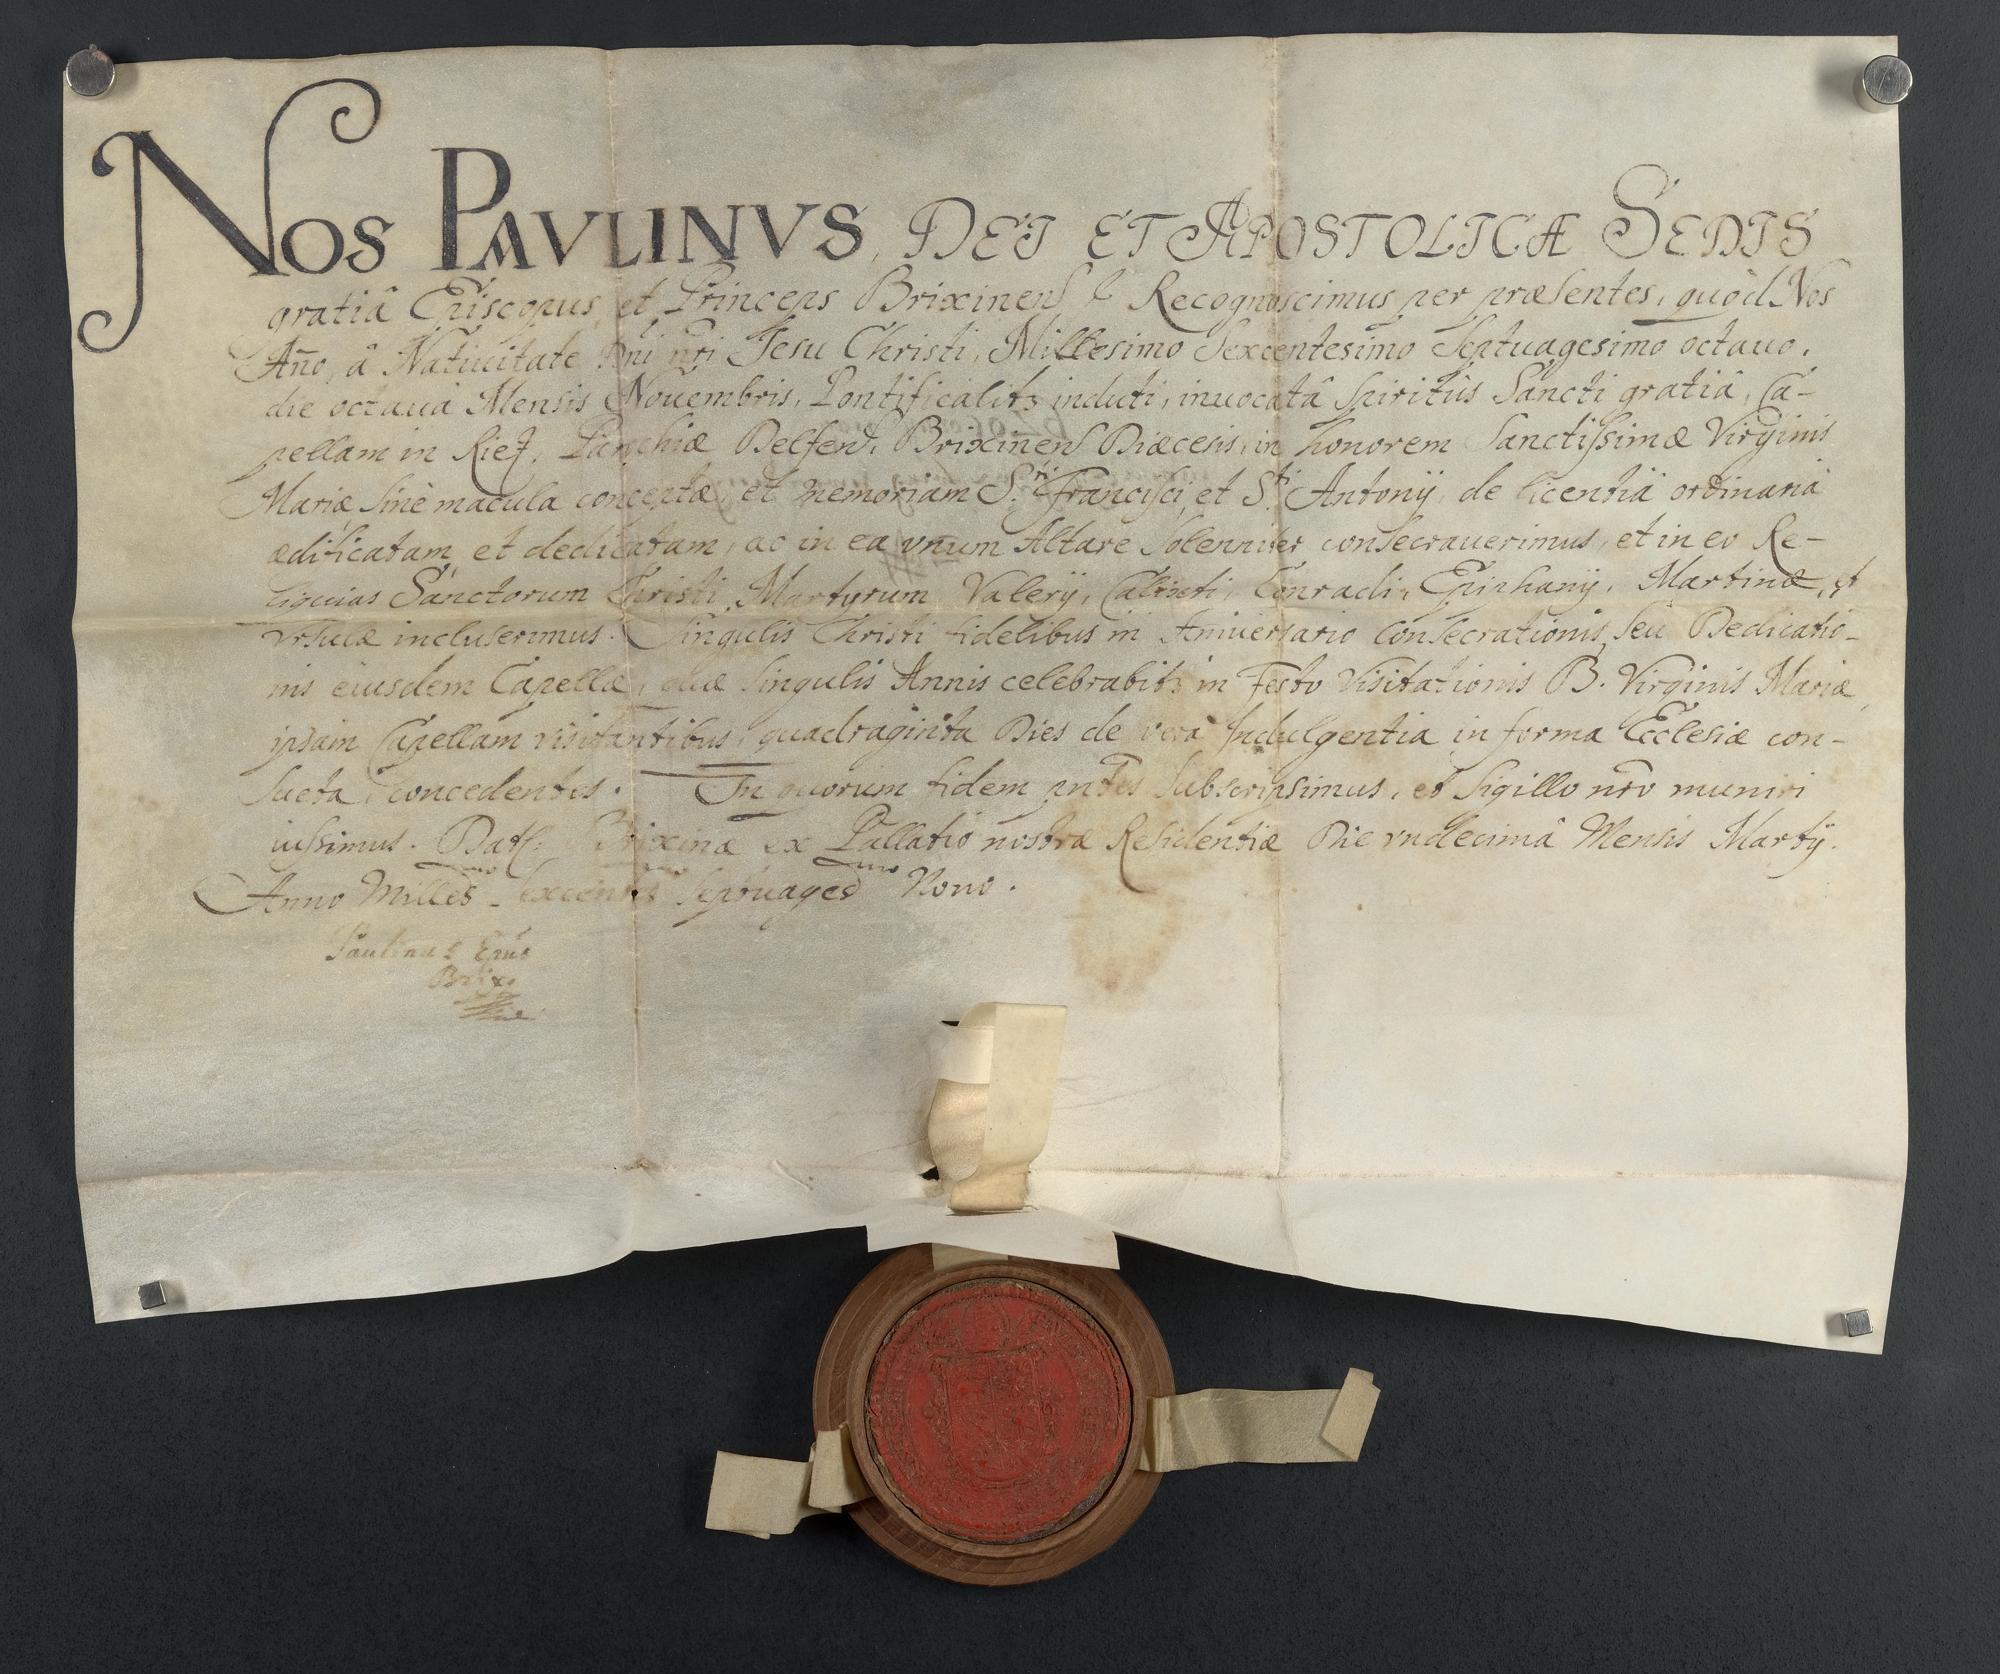 NOS PAVLINVS, DEJ ET APOSTOLICÆ SEDIS
gratiâ Episcopus, et Princeps Brixinens Recognoscimus per præsentes, quòd Nos
Año, â Natiuitate Dni nri Jesu Christi, Millesimo Sexcentesimo Septuagesimo octauo,
die octauâ Mensis Nouembris, Pontificalitr induti, inuocatâ Spiritûs Sancti gratiâ, Ca-
pellam in Rietz, Parochiæ Velsens, Brixinens Diæcesis, in honorem Sanctissimæ Virginis
Mariæ sine macula conceptæ, et memoriam Sti Francisci, et Sti Antonij, de licentiâ ordinariâ
ædificatam et dedicatam, ac in ea vnum Altare Solenniter consecrauerimus, et in eo Re-
liquias Sanctorum Christi Martyrum Valerij, Calixti, Conradi, Epiphanij, Martinæ, et
Vrsulæ incluserimus. Singulis Christi fidelibus in Aniuersario Consecrationis, seu Dedicatio-
nis eiusdem Capellæ, quæ singulis Annis celebrabitr in Festo Visitationis B. Virginis Mariæ,
ipsam Capellam visitantibus, quadraginta Dies de verâ Indulgentia in forma Ecclesiæ con-
sueta concedentes. In quorum fidem pntes subscripsimus, et Sigillo nro muniri
iussimus. Dat: Brixinæ ex Pallatio nostræ Residentiæ Die vndecimâ Mensis Martij.
Anno Milles~mo~ sexcentes~mo~ Septuages~mo~ Nono.
Paulinus Epũs
Brix.